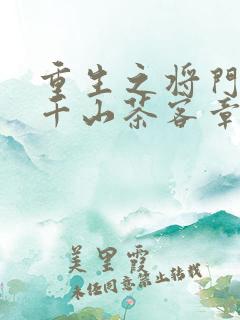 重生之将門
千山茶客章
美里霞
未经同意禁止转载